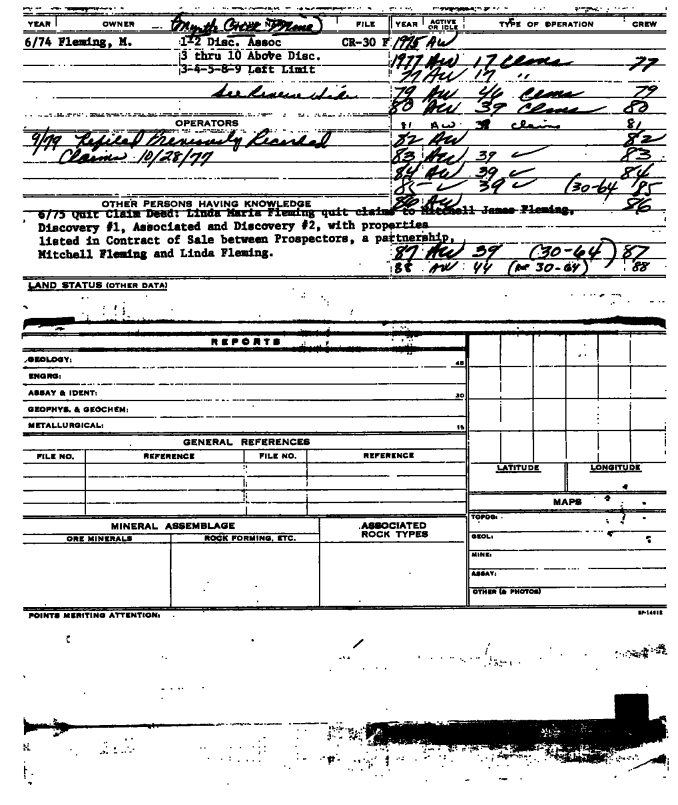 YEAR OWNER FILE YEAR ACTIVE OR IDLE TYPE OF OPERATION CREW
6/74 Fleming, M. 1-2 Disc. Assoc CR-30 F 1975 AW
3 thru 10 Above Disc. 1977 AW 17 Claims 77
3-4-5-8-9 Left Limit 77 AW 17 "
See Reverse Side 79 AW 46 Claims 79
80 AW 39 Claims 80
OPERATORS 81 AW 39 claims 81
9/79 Refiled Previously Recorded 82 AW 82
Claims 10/28/77 83 AW 39 ✓ 83
84 AW 39 ✓ 84
85 ✓ 39 ✓ (30-64 85
OTHER PERSONS HAVING KNOWLEDGE 86 AW 86
6/75 Quit Claim Deed: Linda Maria Fleming quit claims to Mitchell James Fleming,
Discovery #1, Associated and Discovery #2, with properties
listed in Contract of Sale between Prospectors, a partnership,
Mitchell Fleming and Linda Fleming. 87 AW 39 (30-64) 87
88 AW 44 (30-64) 88
LAND STATUS (OTHER DATA)
REPORTS
GEOLOGY: 45
ENGRG:
ASSAY & IDENT: 30
GEOPHYS. & GEOCHEM:
METALLURGICAL: 15
GENERAL REFERENCES
FILE NO. REFERENCE FILE NO. REFERENCE
LATITUDE LONGITUDE
MAPS
MINERAL ASSEMBLAGE ASSOCIATED ROCK TYPES
ORE MINERALS ROCK FORMING, ETC.
TOPOG:
GEOL:
MINE:
ASSAY:
OTHER (& PHOTOS)
POINTS MERITING ATTENTION: